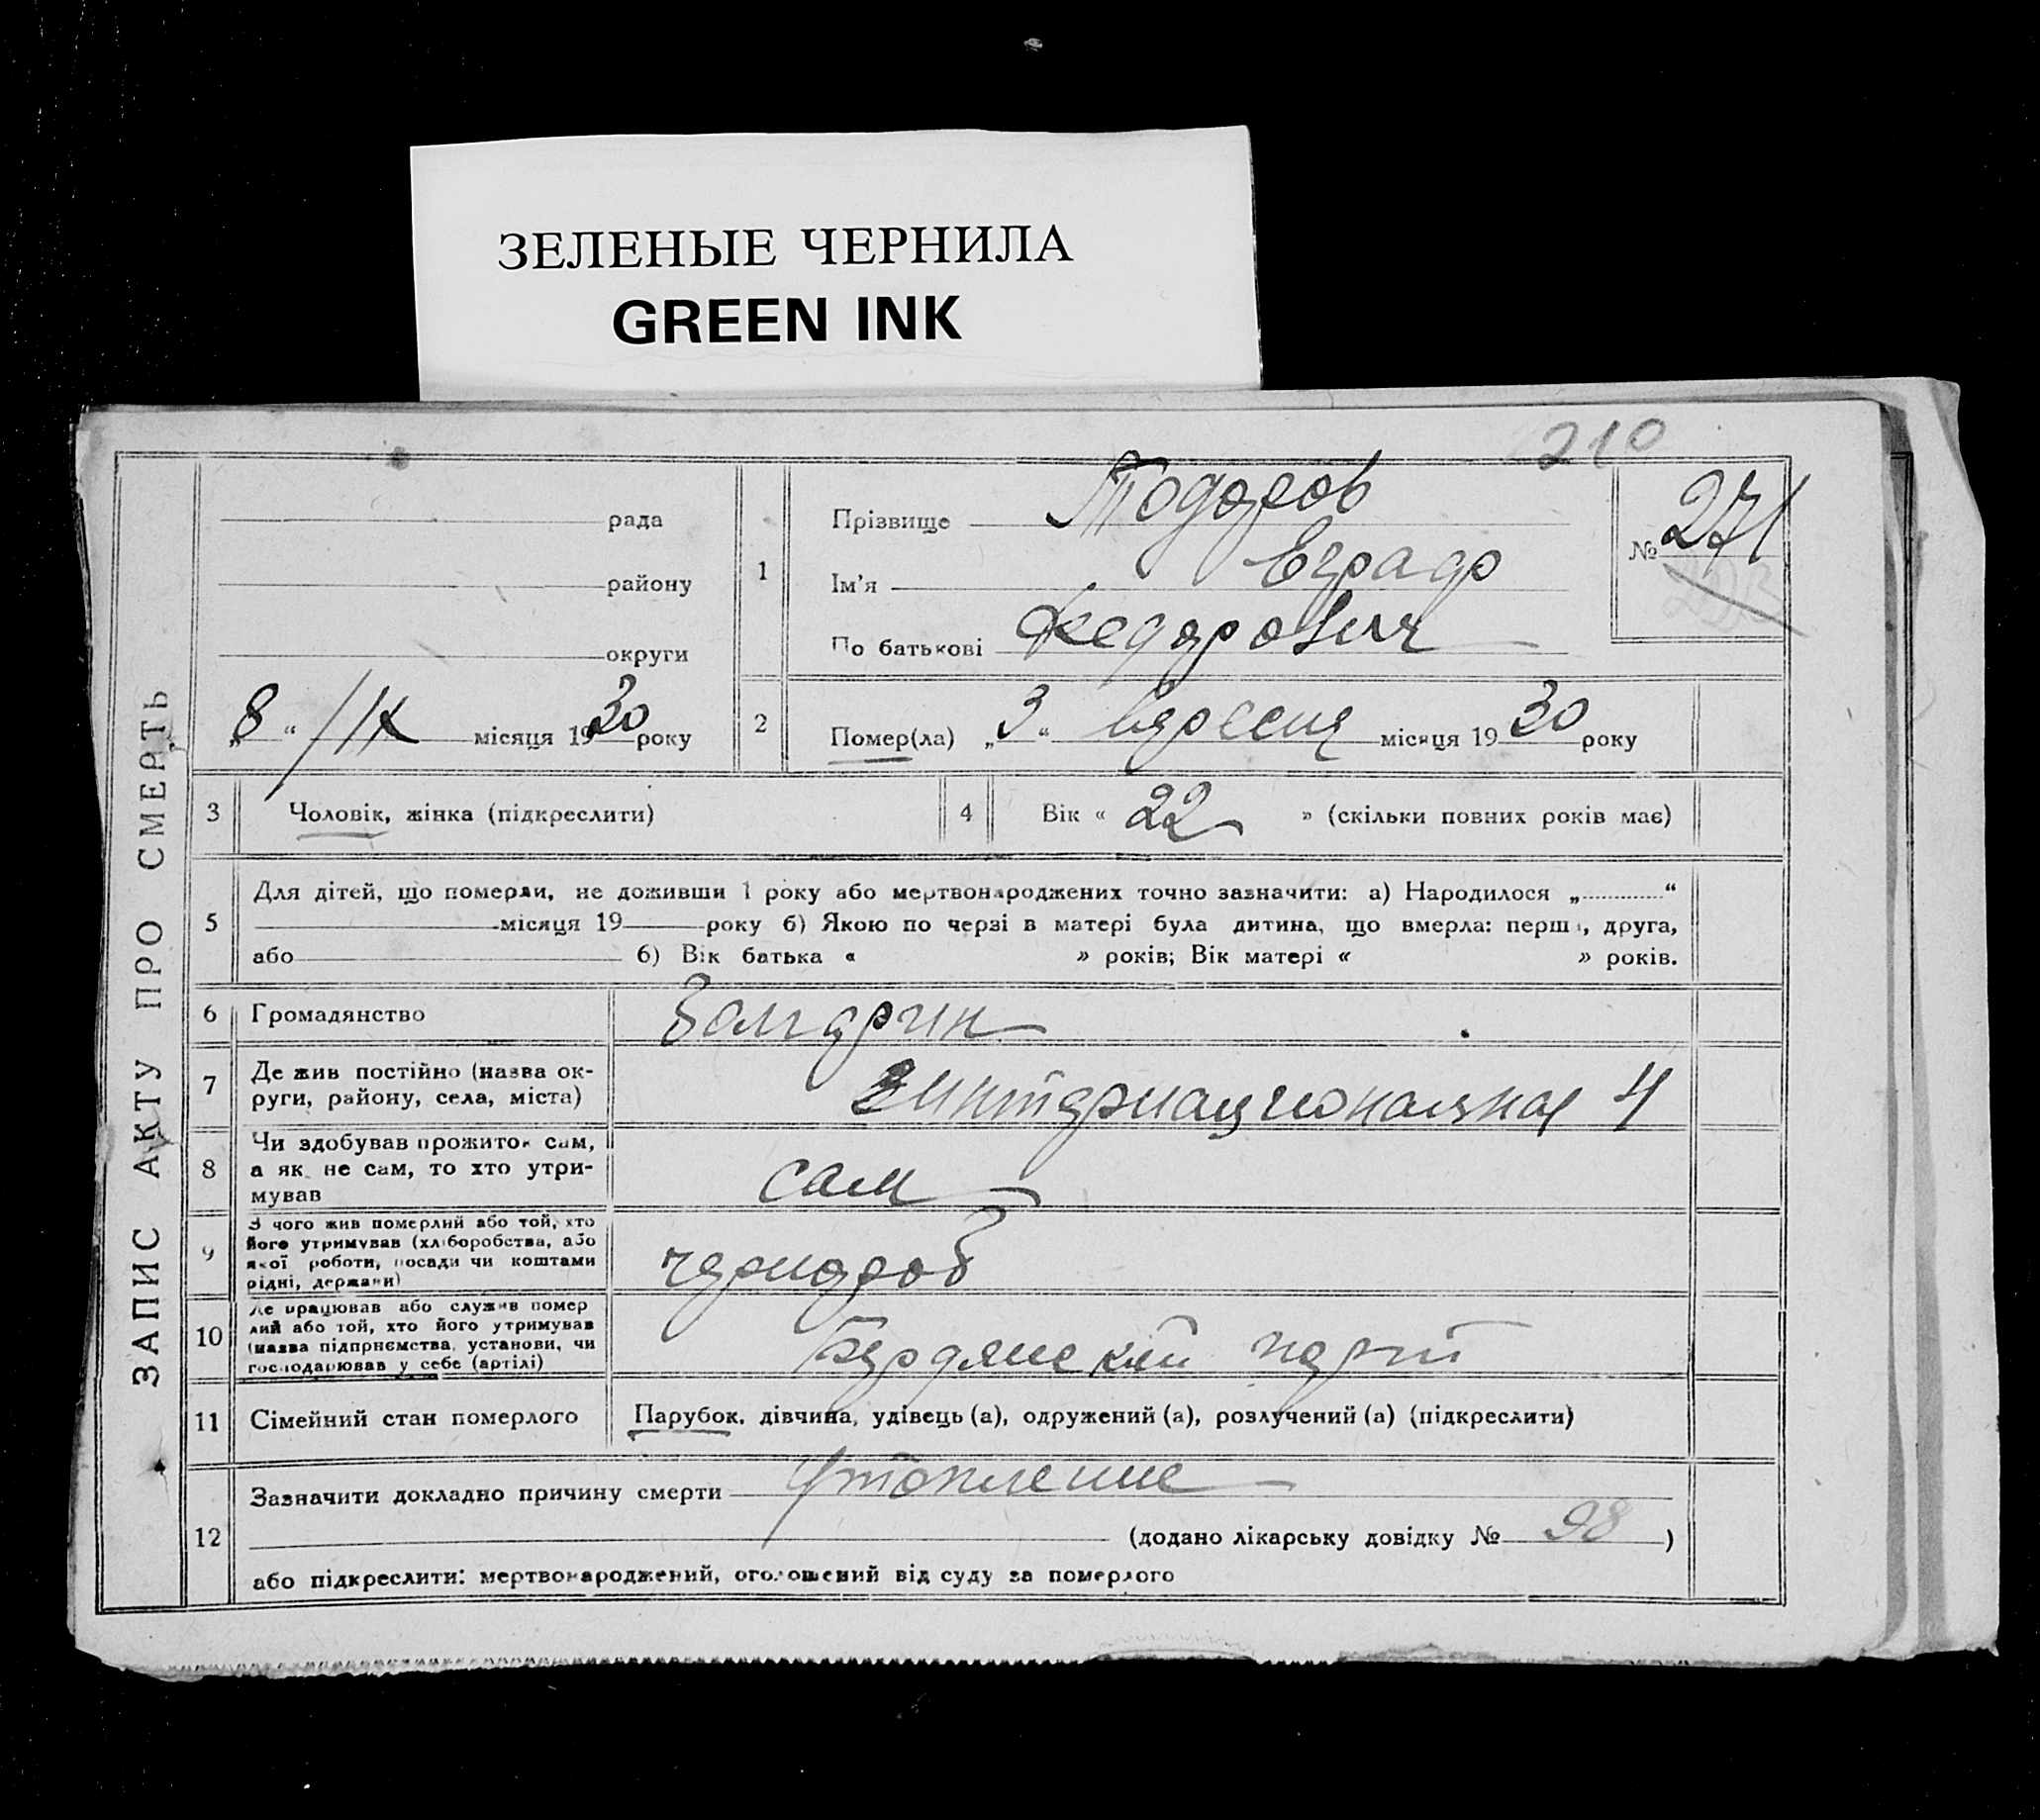 ЗЕЛЕНЫЕ ЧЕРНИЛА
GREEN INK
210
ЗАПИС АКТУ ПРО СМЕРТЬ
рада
району
округи
„8“ /IX місяця 1930 року
1
Прізвище Тодоров
Ім'я
По батькові Федорович
№ 271
2
Помер(ла) „3“ вересня місяця 1930 року
3 Чоловік, жінка (підкреслити)
4 Вік « 22 » (скільки повних років має)
5
Для дітей, що померли, не доживши 1 року або мертвонароджених точно зазначити: а) Народилося „ “
місяця 19 року б) Якою по черзі в матері була дитина, що вмерла: перша, друга,
або б) Вік батька « » років; Вік матері « » років.
6 Громадянство Болгарин
7
Де жив постійно (назва ок-
руги, району, села, міста)
Интернациональная 4
8
Чи здобував прожиток сам,
а як не сам, то хто утри-
мував
сам
9
З чого жив померлий або той, хто
його утримував (хліборобства, або
якої роботи, посади чи коштами
рідні, держави)
чорнороб
10
Де працював або служив помер
лий або той, хто його утримував
(назва підпрнємства, установи, чи
господарював у себе (артілі)
Бердянский порт
11 Сімейний стан померлого
Парубок, дівчина, удівець (а), одружений (а), розлучений (а) (підкреслити)
12
Зазначити докладно причину смерти Утопление
(додано лікарську довідку № 98 )
або підкреслити: мертвонароджений, оголошений від суду за померлого